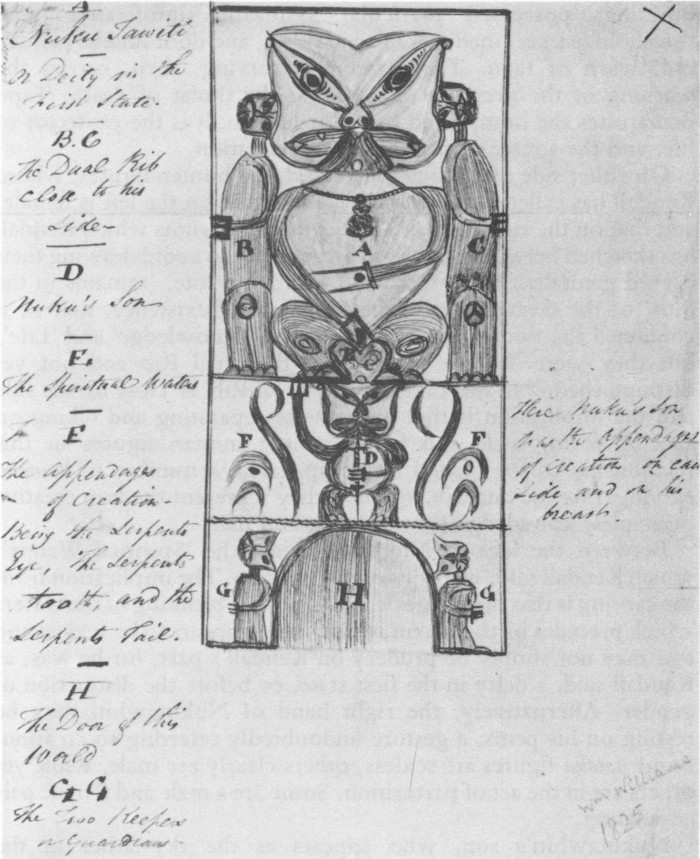 A
Nuku Tawite
or Deity in the
First State
B. C
The Dual Rib
Close to his
Side
D
Nuku's Son
E.
The Spiritual Waters
F
The appendages
of Creation
Being the Serpents
Eye, the Serpents
tooth and the
Serpents Tail.
H
The Door of this
World
G G
The Two Keepers
or Guardians
B
A
C
E
F
D
F
G
H
G
Here Nuku's Son
has the appendages
of Creation on each
side and on his
breast